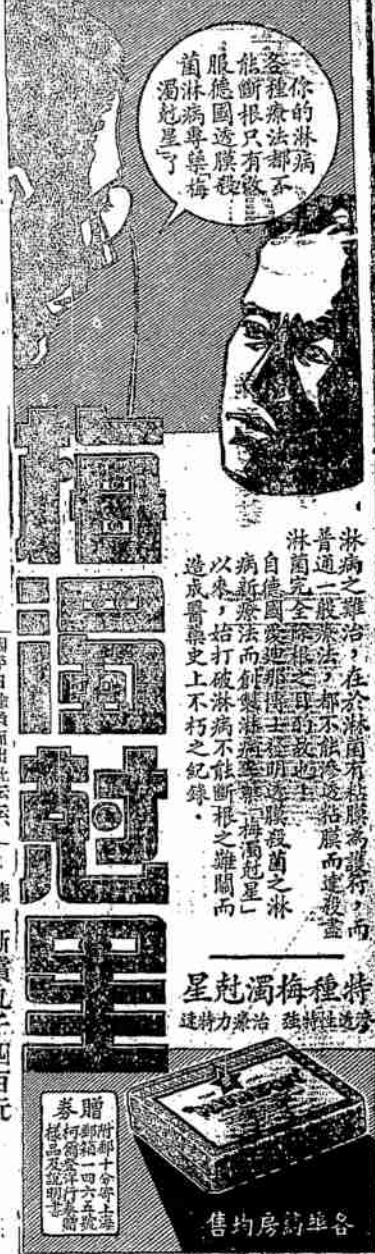 你的淋病
各種療法都不
能斷根只有㪚
服德國透膜殺
菌淋病專藥梅
濁尅星了
淋病之難治，在於淋菌有粘膜為護符，而
普通一般療法，都不能滲透粘膜而達殺盡
淋菌完全除根之目的故也。
自德國愛迪那博士發明透膜殺菌之淋
病新療法而創製淋病專藥「梅濁尅星」
以來，始打破淋病不能斷根之難關而
造成醫藥史上不朽之紀錄。
梅濁尅星
特種梅濁尅星
滲透性特強 治療力特達
贈券
附郵十分寄上海
郵箱一四六五號
柯爾登洋行奏贈
樣品及說明書
各埠药房均售